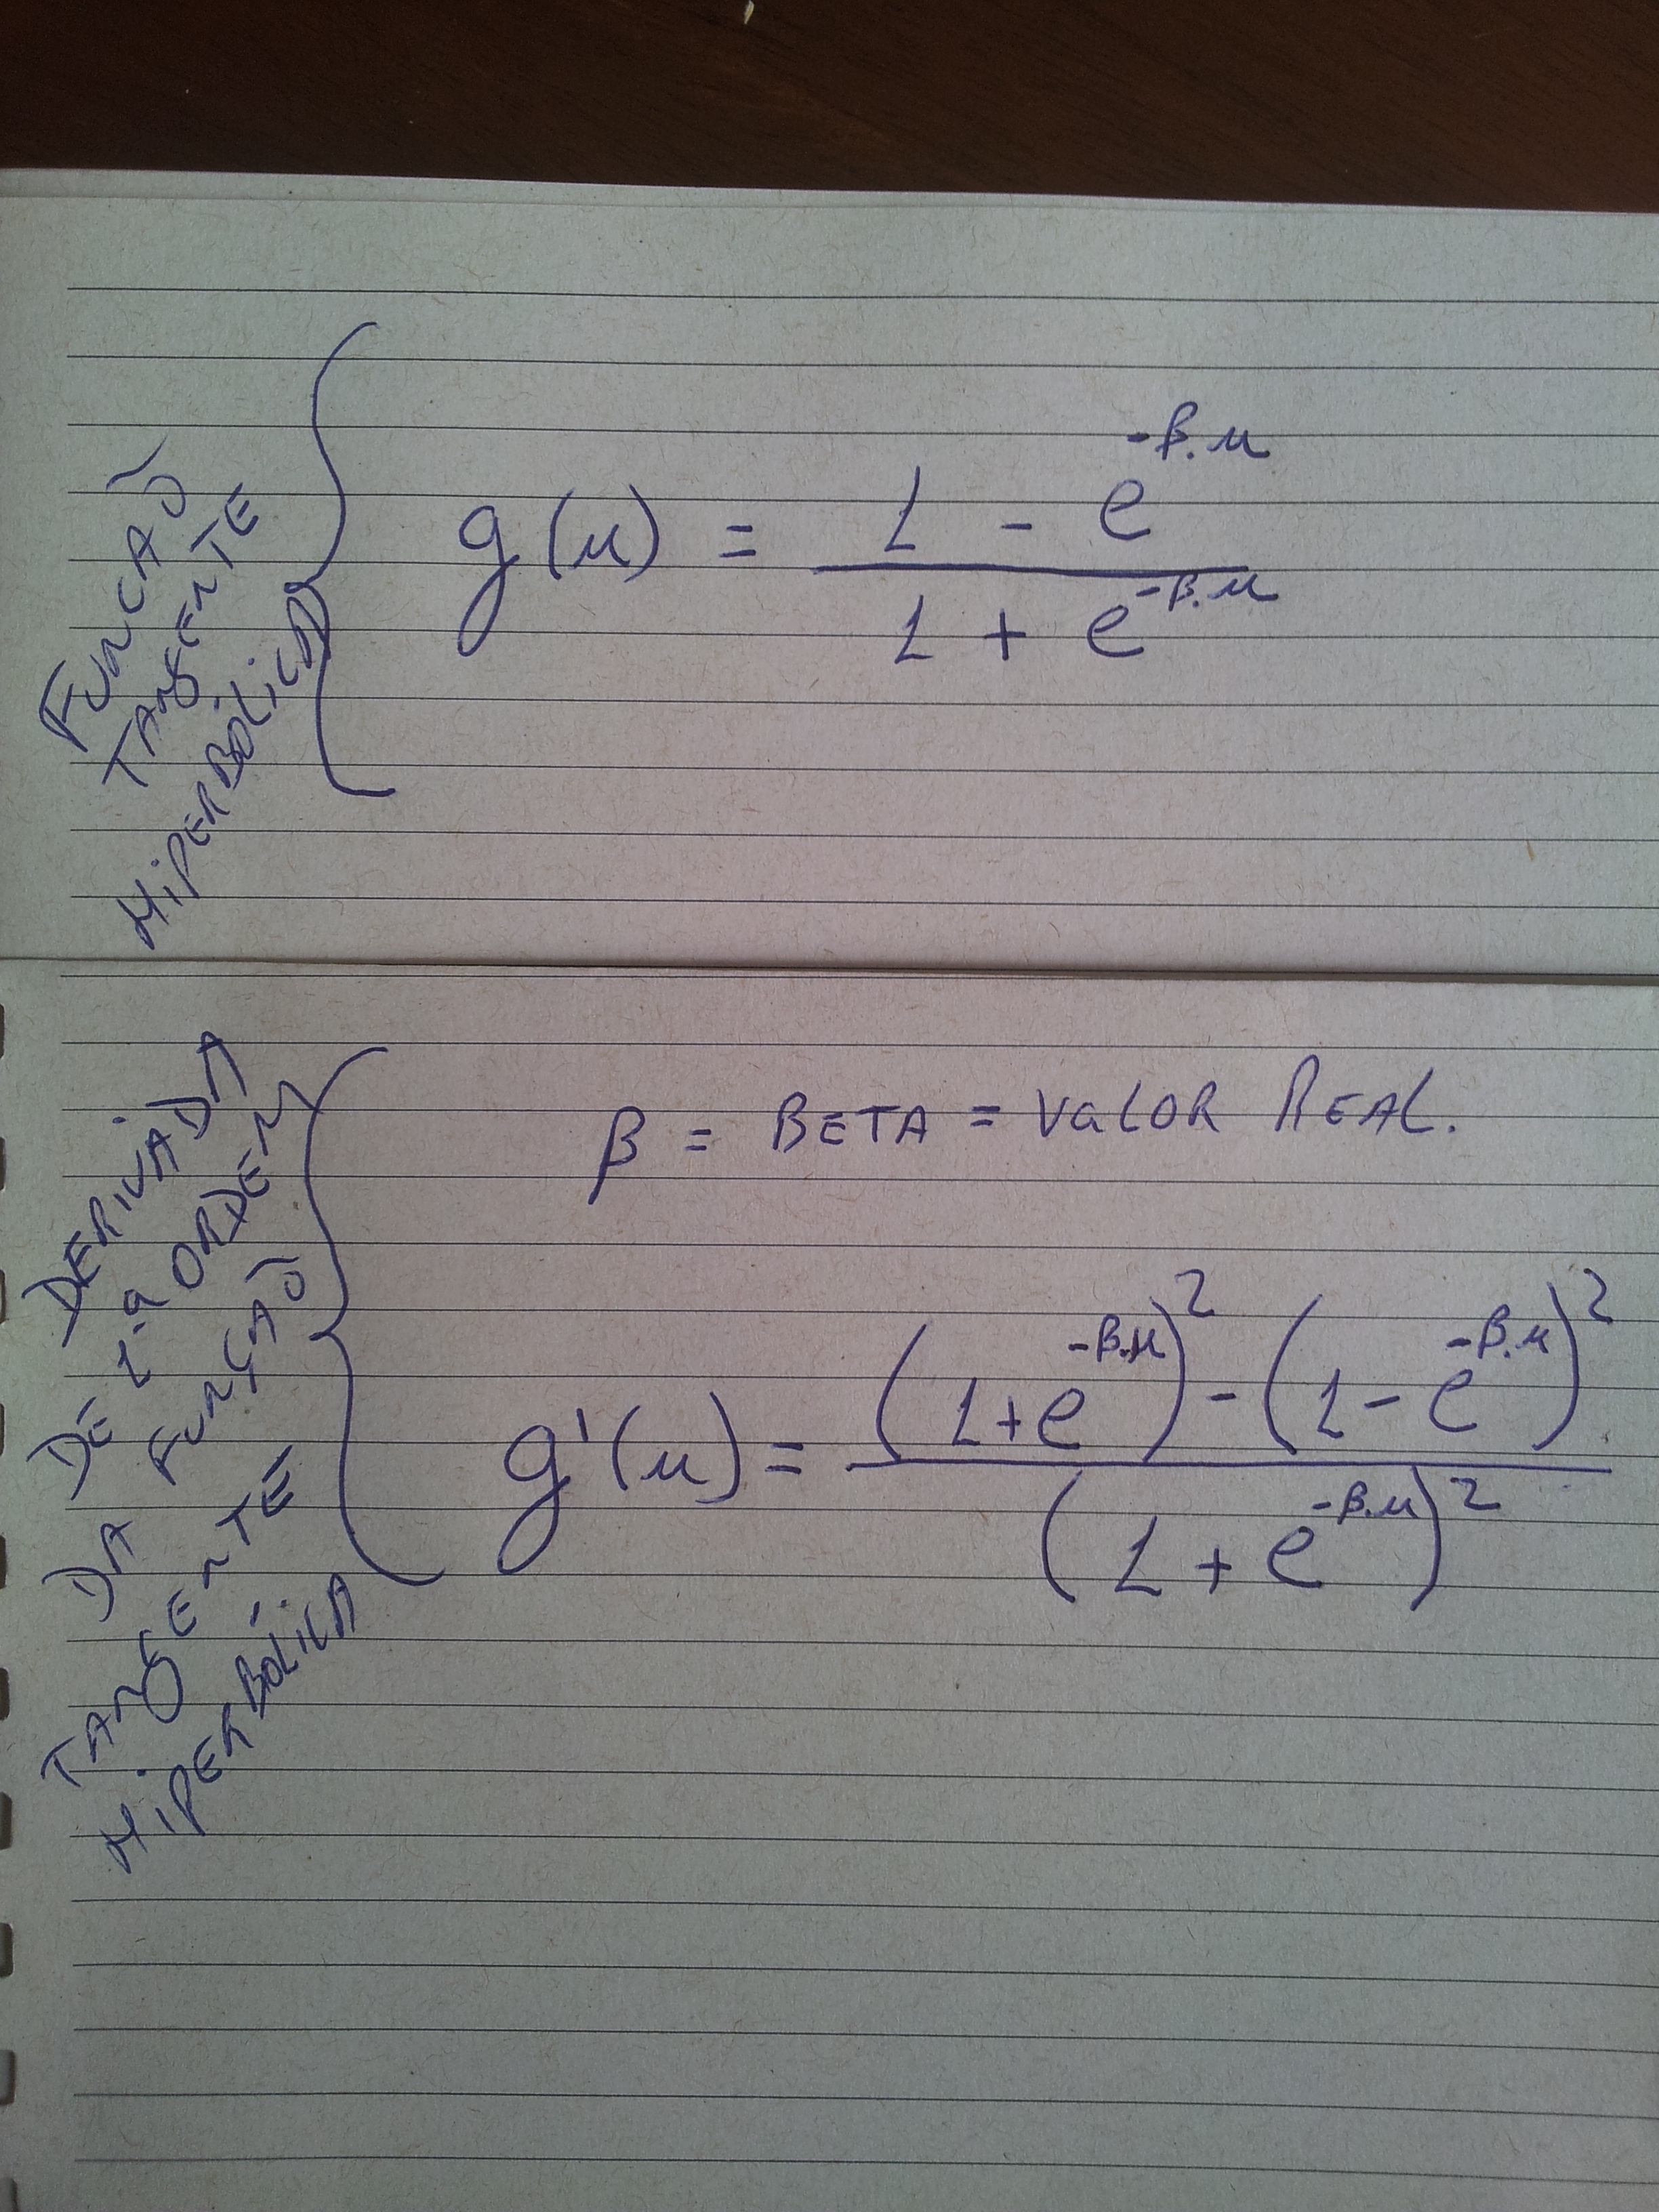 FUNÇAÕ
TANGENTE
HIPERBÓLICA
g(u) = 1 - e^{-β.u} / 1 + e^{-β.u}
DERIVADA
DE 1.a ORDEM
DA FUNÇAÕ
TANGENTE
HIPERBÓLICA
β = BETA = VALOR REAL.
g'(u) = (1+e^{-β.u})^2 - (1-e^{-β.u})^2 / (1 + e^{-β.u})^2